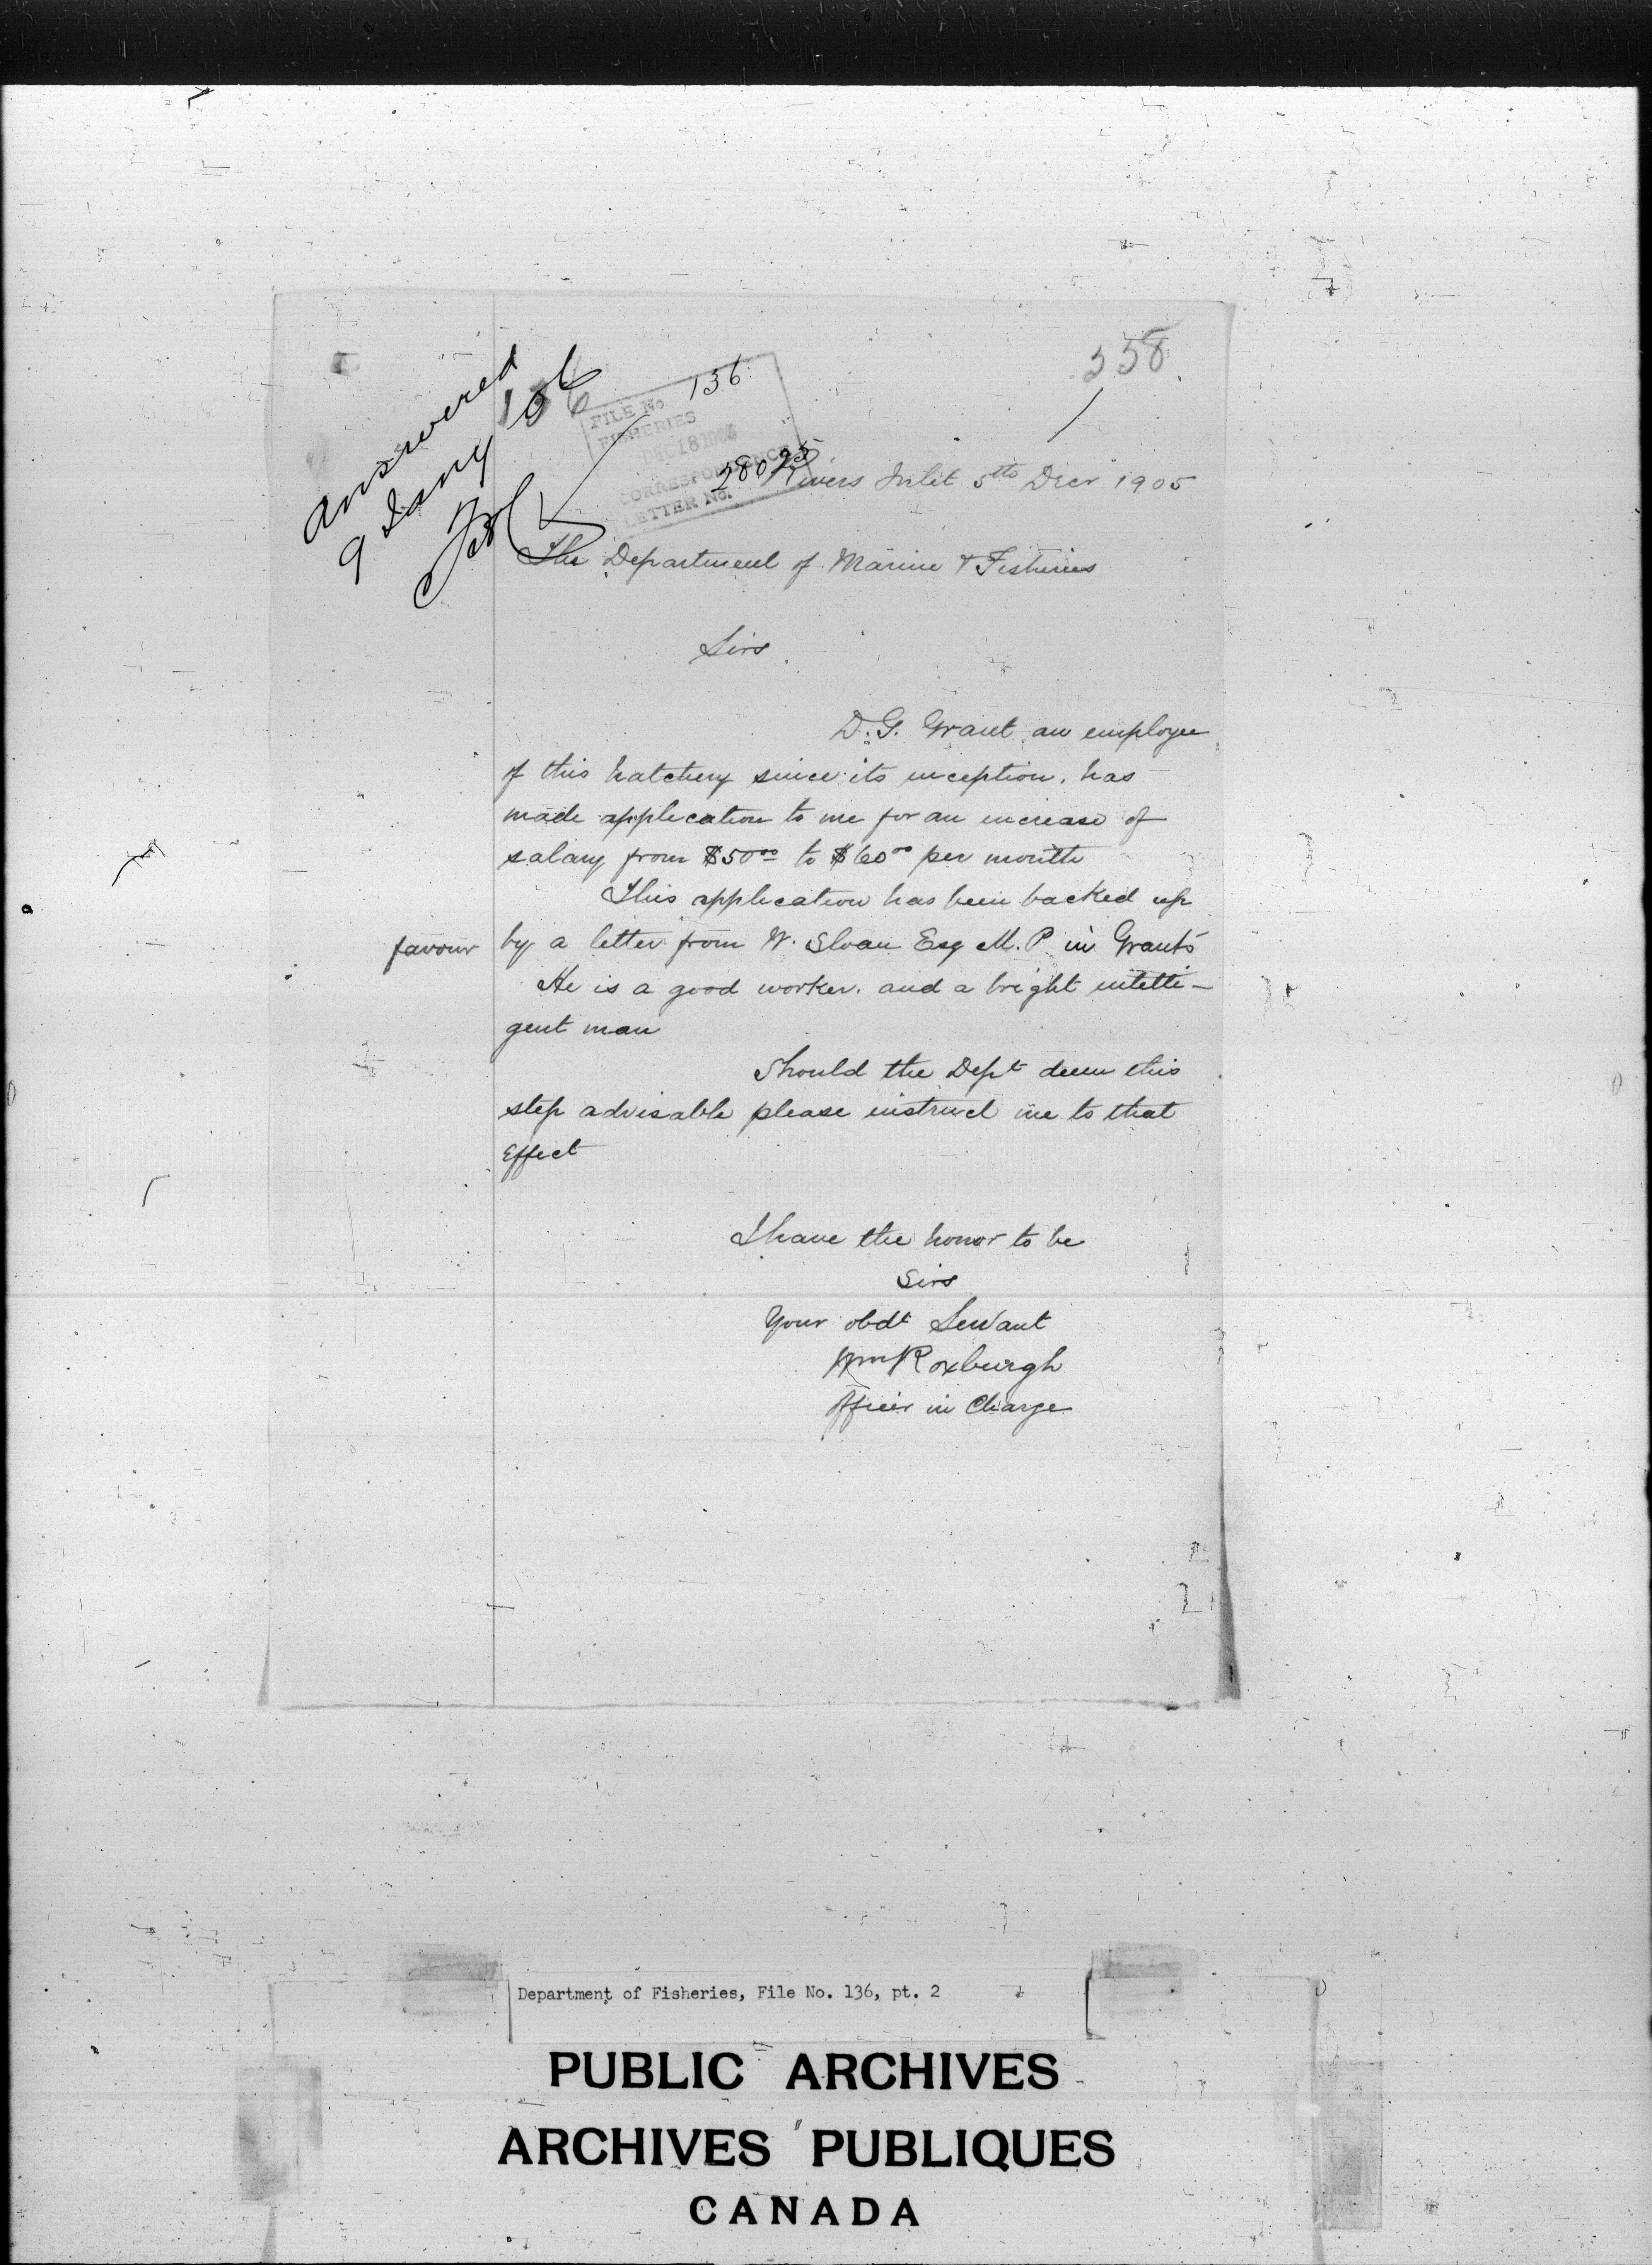 358
answered
9 Jany 106
136
FILE No
FISHERIES
DEC 18 1905
CORRESPONDENCE
LETTER No.
28025
Rivers Inlet 5th Decr 1905
The Department of Marine & Fisheries
Sirs
D. G. Grant an employee
of this hatchery since its inception, has
made application to me for an increase of
salary from $50.00 to $60.00 per month
This application has been backed up
by a letter from W. Sloan Esq M. P. in Grant's
favour
He is a good worker. and a bright intelli-
gent man
Should the Dept deem this
step advisable please instruct me to that
Effect
I have the honor to be
Sirs
Your obdt Servant
Wm Roxburgh
Officer in Charge
Department of Fisheries, File No. 136, pt. 2
PUBLIC ARCHIVES
ARCHIVES PUBLIQUES
CANADA